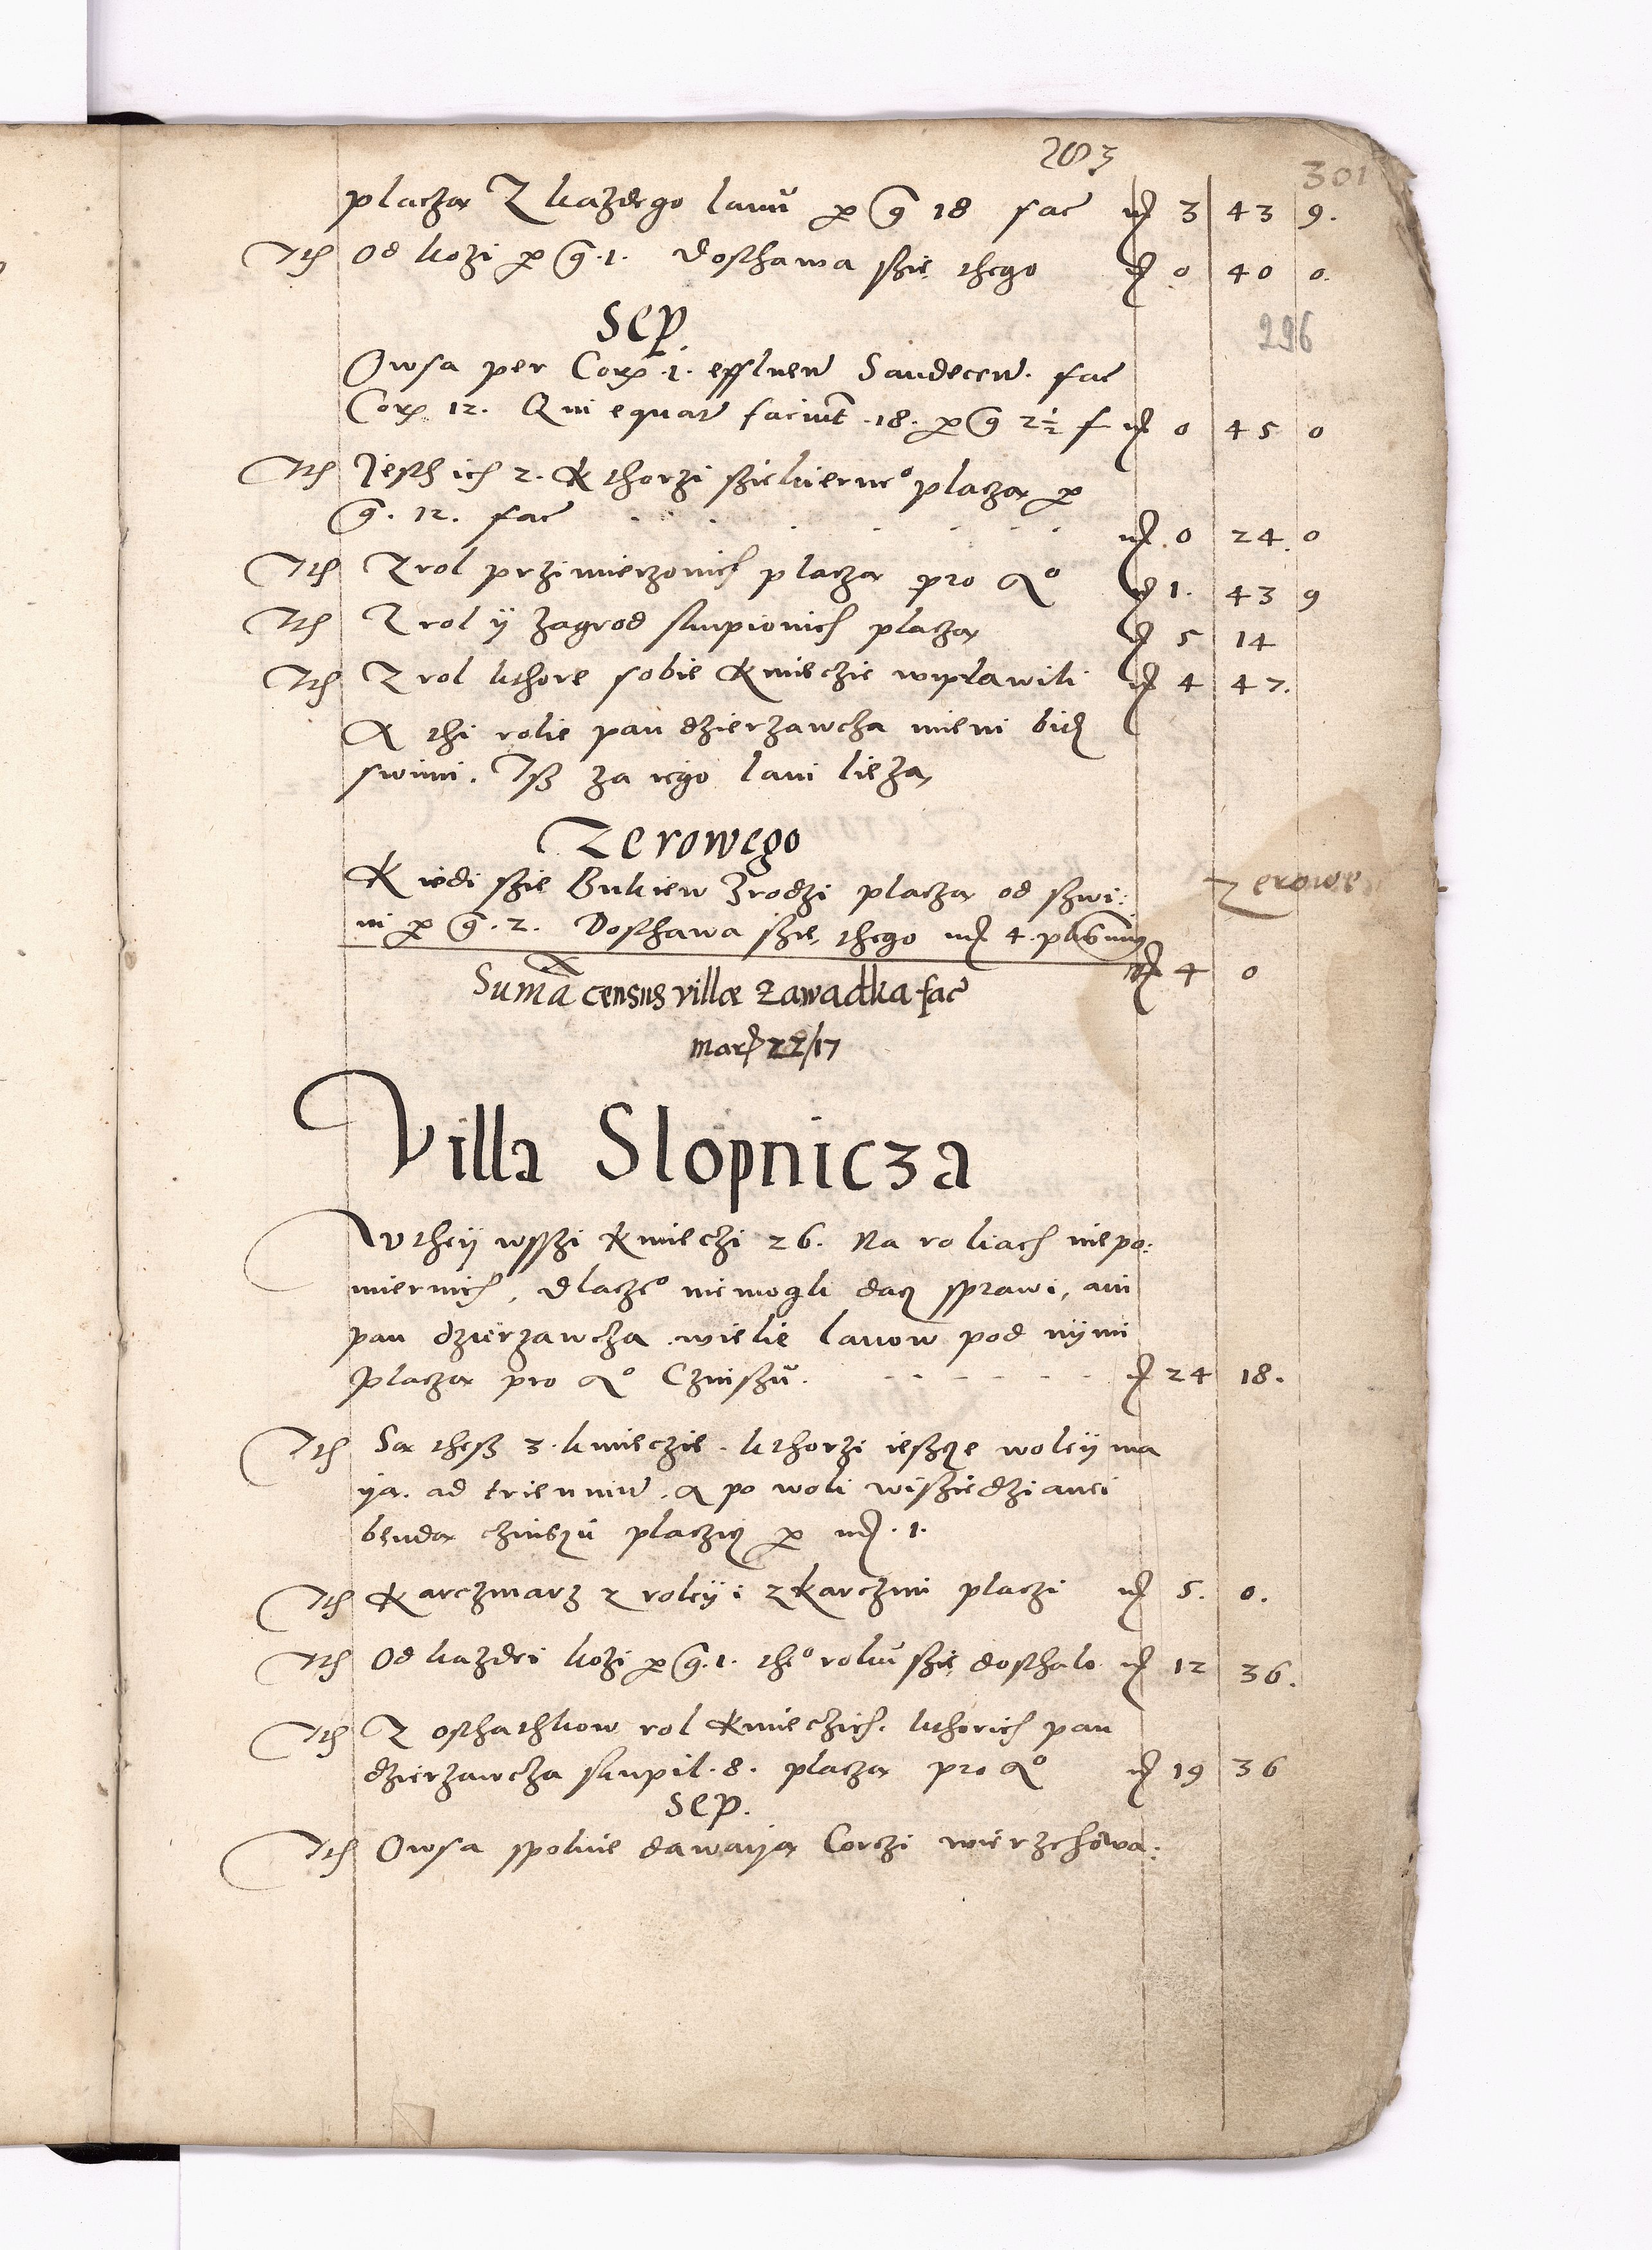 203
301
placzą Z każdego lanu per gr 18 fac mr 3 43 9.
Itm Od kozi per gr. 1. dosthawa szię thego mr 0 40 0.
Sep.
296
Owsa per Cor. 1. effluen Sandecen. fac
Cor 12. Qui equat faciunt .18. per gr 2½ f mr 0 45 0
Itm Jesth ich 2. Kthorzi sziekierne° placzą per
gr. 12. fac mr 0 24 0
Itm Z rol przimierzonich placzą pro Ao mr 1. 43 9
Itm Z rol ÿ zagrod skupionich placzą mr 5 14
Itm Z rol kthore sobie Kmieczie wiprawili mr 4 47.
A thi rolie pan dzierzawcza mieni bidz
swimi. Isz za iego lani lieza
Zerowego
Kiedi szie Bukiew Zrodzi placzą od szwi:
ni per gr. 2. Dosthawa szie, thego mr 4. mr 4 0
Zerowe
Suma census villæ Zawadka fac
Marc 22/17
Villa Slopnicza
W theÿ wsszi Kmieczi 26. Na roliach niepo:
miernich, dlacze° niemogli dacz sprawi, ani
pan dzierzawcza wielie lanow pod nÿmi
placzą pro Ao Czinszu. mr 24 18.
Itm Są thesz 3. kmieczie. kthorzi ieszcze woleÿ ma
ÿą. ad trienniu. a po woli wisziedzianei
bendą czinszu placzicz per mr. 1.
Itm Karczmarz z roleÿ i z karczmi placzi mr 5. 0.
Itm Od każdei kozi per gr. 1. the° roku szię dosthalo mr 12 36.
Itm Z osthathkow rol Kmieczich. kthorich pan
dzierzawcza skupil. 8. placzą pro Ao mr 19 36
Sep.
Itm Owsa spolnie dawaÿą Corczi wierzchowa: